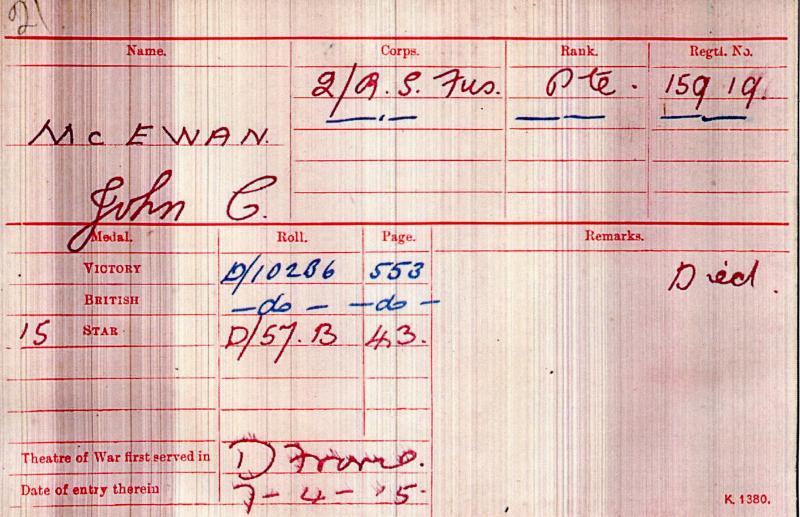 21
Name. Corps. Rank. Regtl. No.
2/R. S. Fus. Pte. 15919.
McEWAN.
John C.
Medal. Roll. Page. Remarks.
VICTORY D/102B6 553 Died.
BRITISH -do- -do-
15 STAR D/57.B 43.
Theatre of War first served in
Date of entry therein 7-4-15
K. 1380.